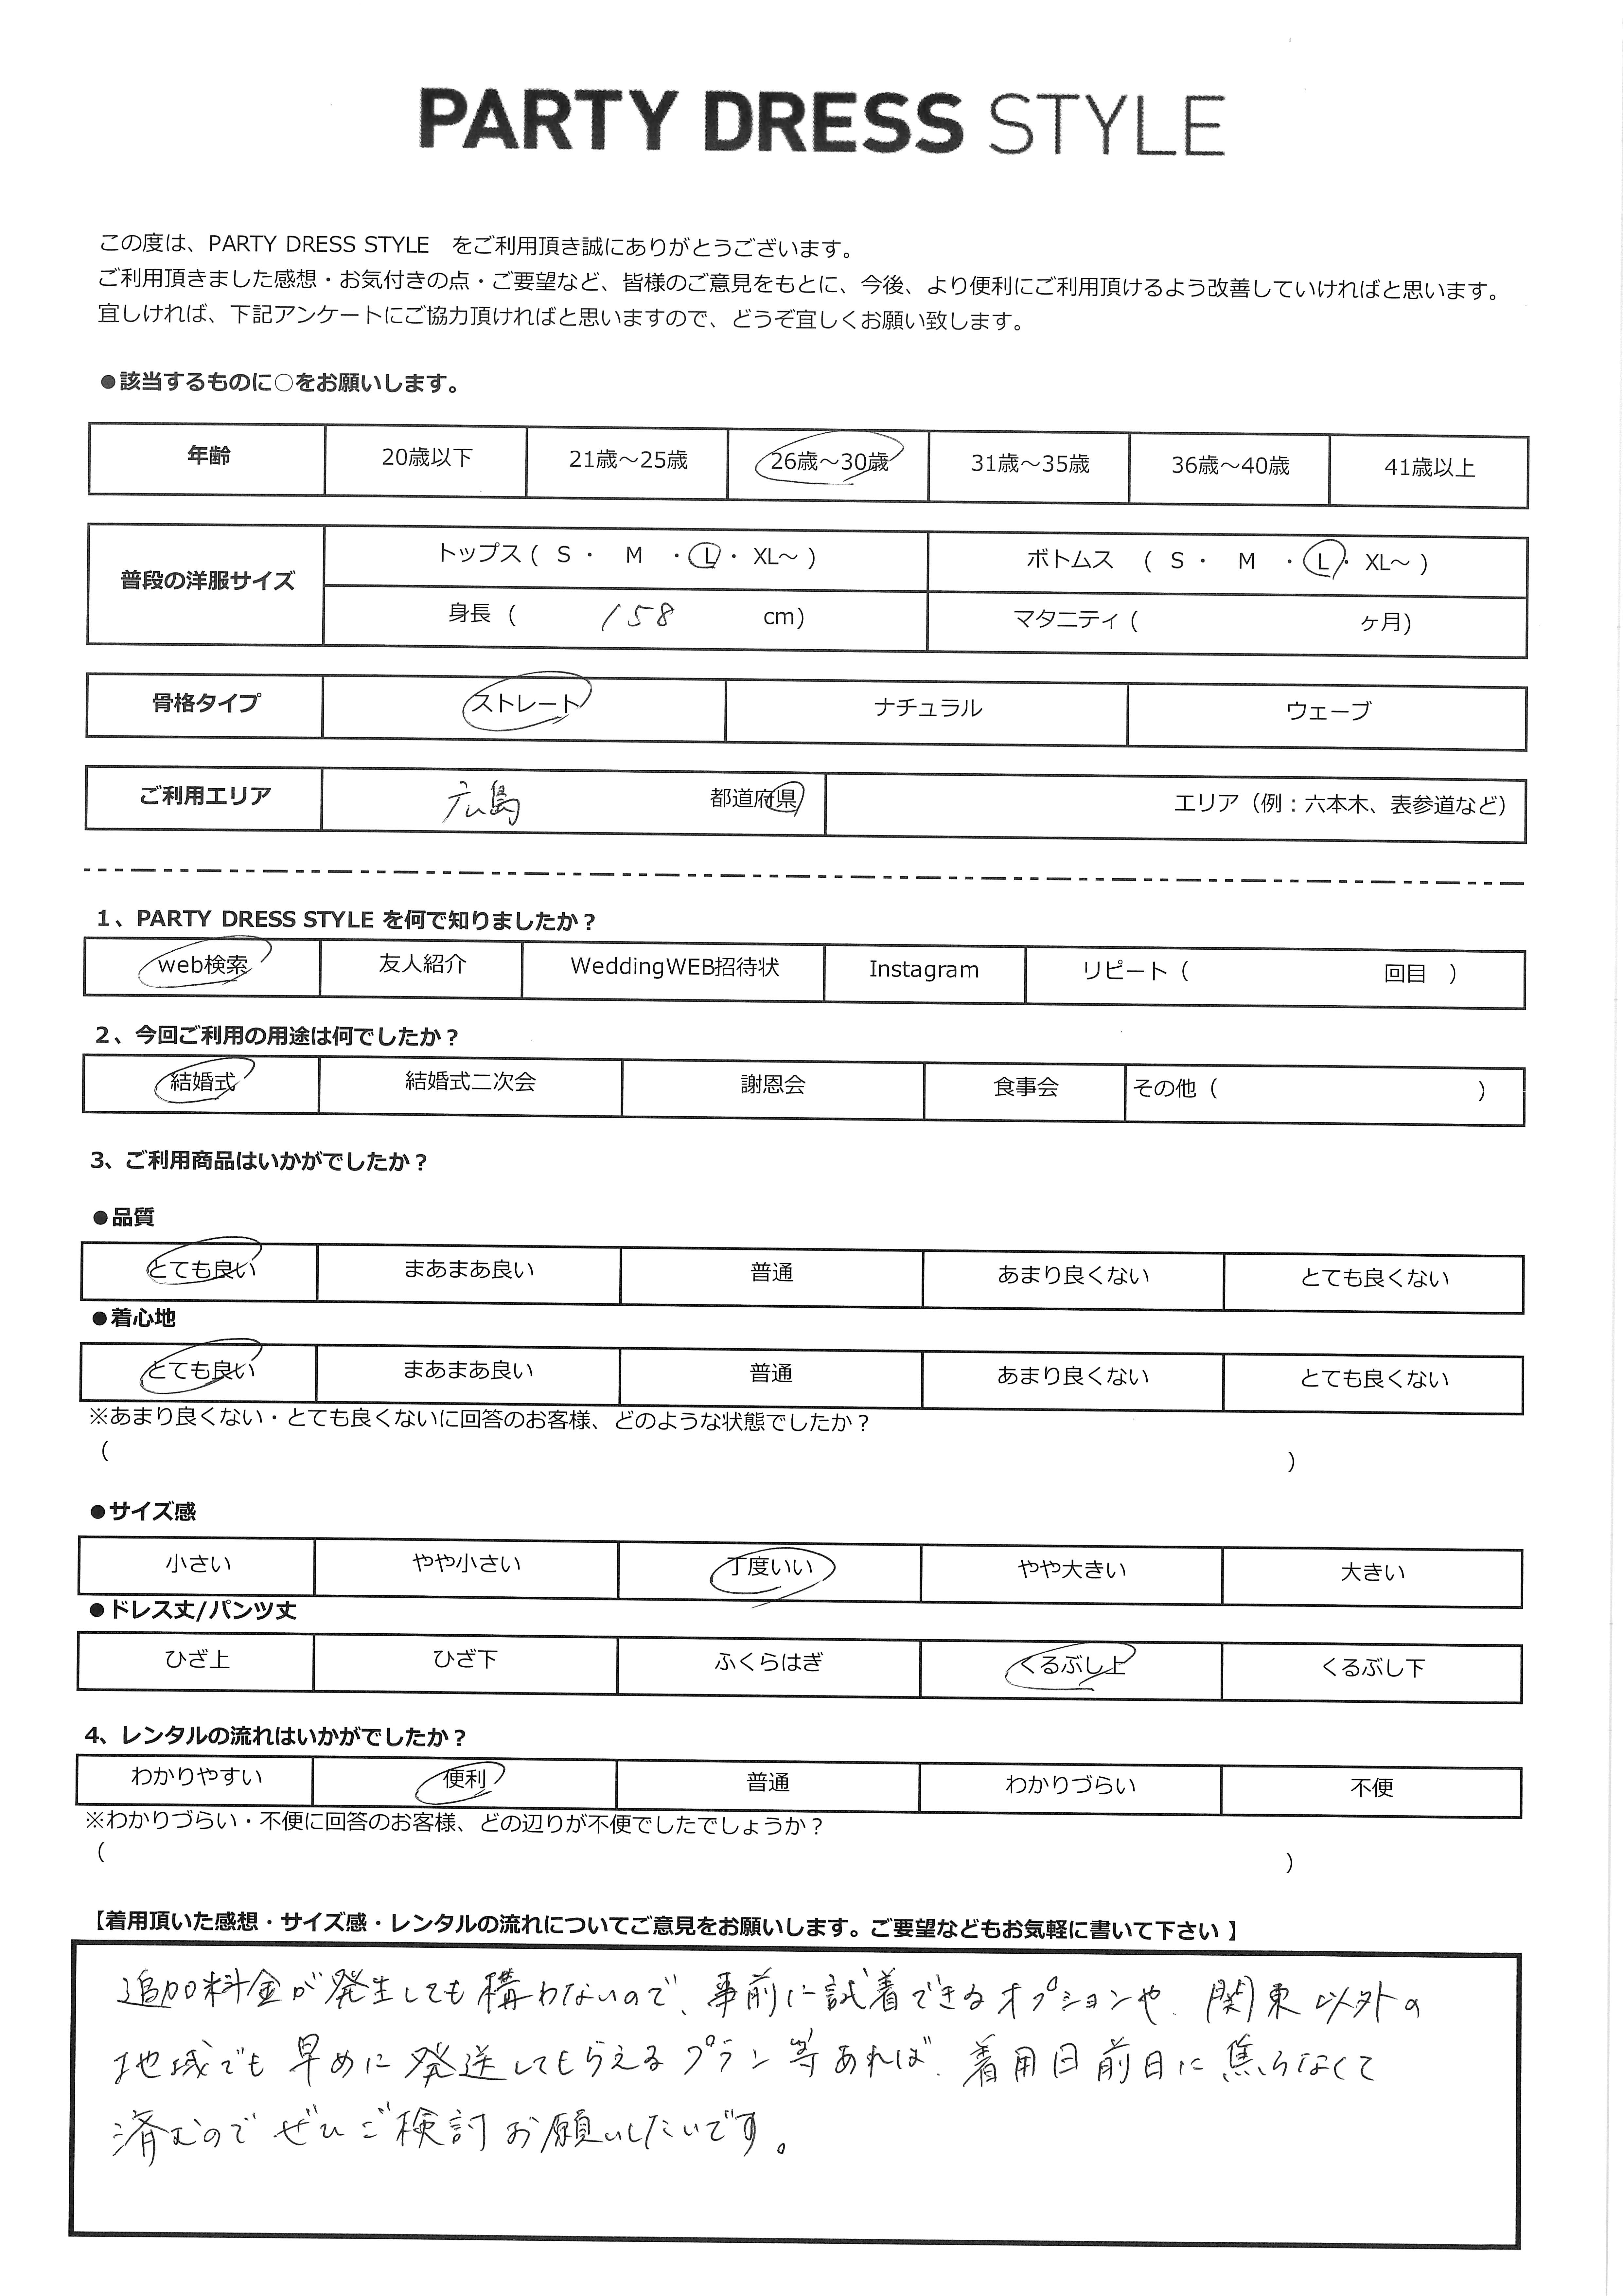 PARTY DRESS STYLE
この度は、PARTY DRESS STYLE　をご利用頂き誠にありがとうございます。
ご利用頂きました感想・お気付きの点・ご要望など、皆様のご意見をもとに、今後、より便利にご利用頂けるよう改善していければと思います。
宜しければ、下記アンケートにご協力頂ければと思いますので、どうぞ宜しくお願い致します。
●該当するものに○をお願いします。
年齢 20歳以下 21歳～25歳 26歳～30歳 31歳～35歳 36歳～40歳 41歳以上
普段の洋服サイズ トップス ( S ・ M ・ L ・ XL～ ) ボトムス ( S ・ M ・ L ・ XL～ )
身長 ( 158 cm) マタニティ ( ヶ月)
骨格タイプ ストレート ナチュラル ウェーブ
ご利用エリア 広島 都道府県 エリア（例：六本木、表参道など）
1、PARTY DRESS STYLE を何で知りましたか？
web検索 友人紹介 WeddingWEB招待状 Instagram リピート（ 回目 ）
2、今回ご利用の用途は何でしたか？
結婚式 結婚式二次会 謝恩会 食事会 その他（ ）
3、ご利用商品はいかがでしたか？
●品質
とても良い まあまあ良い 普通 あまり良くない とても良くない
●着心地
とても良い まあまあ良い 普通 あまり良くない とても良くない
※あまり良くない・とても良くないに回答のお客様、どのような状態でしたか？
（ ）
●サイズ感
小さい やや小さい 丁度いい やや大きい 大きい
●ドレス丈/パンツ丈
ひざ上 ひざ下 ふくらはぎ くるぶし上 くるぶし下
4、レンタルの流れはいかがでしたか？
わかりやすい 便利 普通 わかりづらい 不便
※わかりづらい・不便に回答のお客様、どの辺りが不便でしたでしょうか？
（ ）
【着用頂いた感想・サイズ感・レンタルの流れについてご意見をお願いします。ご要望などもお気軽に書いて下さい 】
追加料金が発生しても構わないので、事前に試着できるオプションや、関東以外の
地域でも早めに発送してもらえるプラン等あれば、着用日前日に焦らなくて
済むのでぜひご検討お願いしたいです。